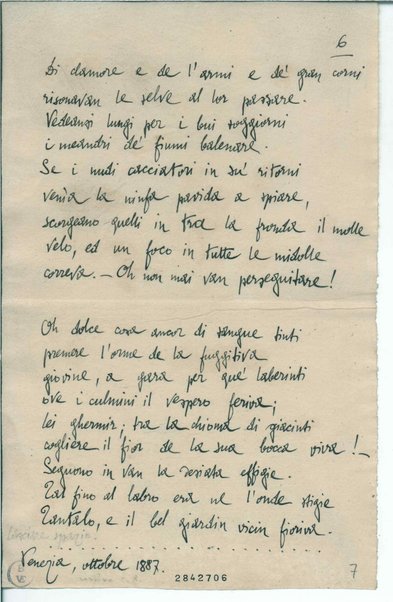 6
Di clamore e de l'armi e de' gran corni
risonavan le selve al lor passare.
Vedeansi lungi per i bui soggiorni
i meandri de' fiumi balenare.
Se i nudi cacciatori in su' ritorni
venìa la ninfa pavida a spiare,
scorgeano quelli in tra la fronda il molle
velo, ed un foco in tutte le midolle
correva. – Oh non mai van perseguitare!
Oh dolce cosa ancor di sangue tinti
premere l'orme de la fuggitiva
giovine, a gara per que' laberinti
ove i culmini il vespero feriva;
lei ghermir; tra la chioma di giacinti
cogliere il fior de la sua bocca viva! –
Seguono in van la desiata effigie.
Tal fino al labro era ne l'onde stigie
Tantalo, e il bel giardin vicin fioriva.
Venezia, ottobre 1887.
2842706
7